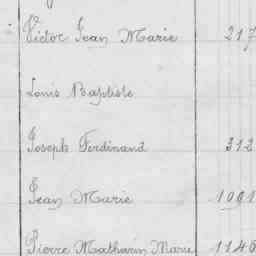 Victor Jean Marie 217
Louis Baptiste
Joseph Ferdinand 312
Jean Marie 1091
Pierre Mathurin Marie 1146